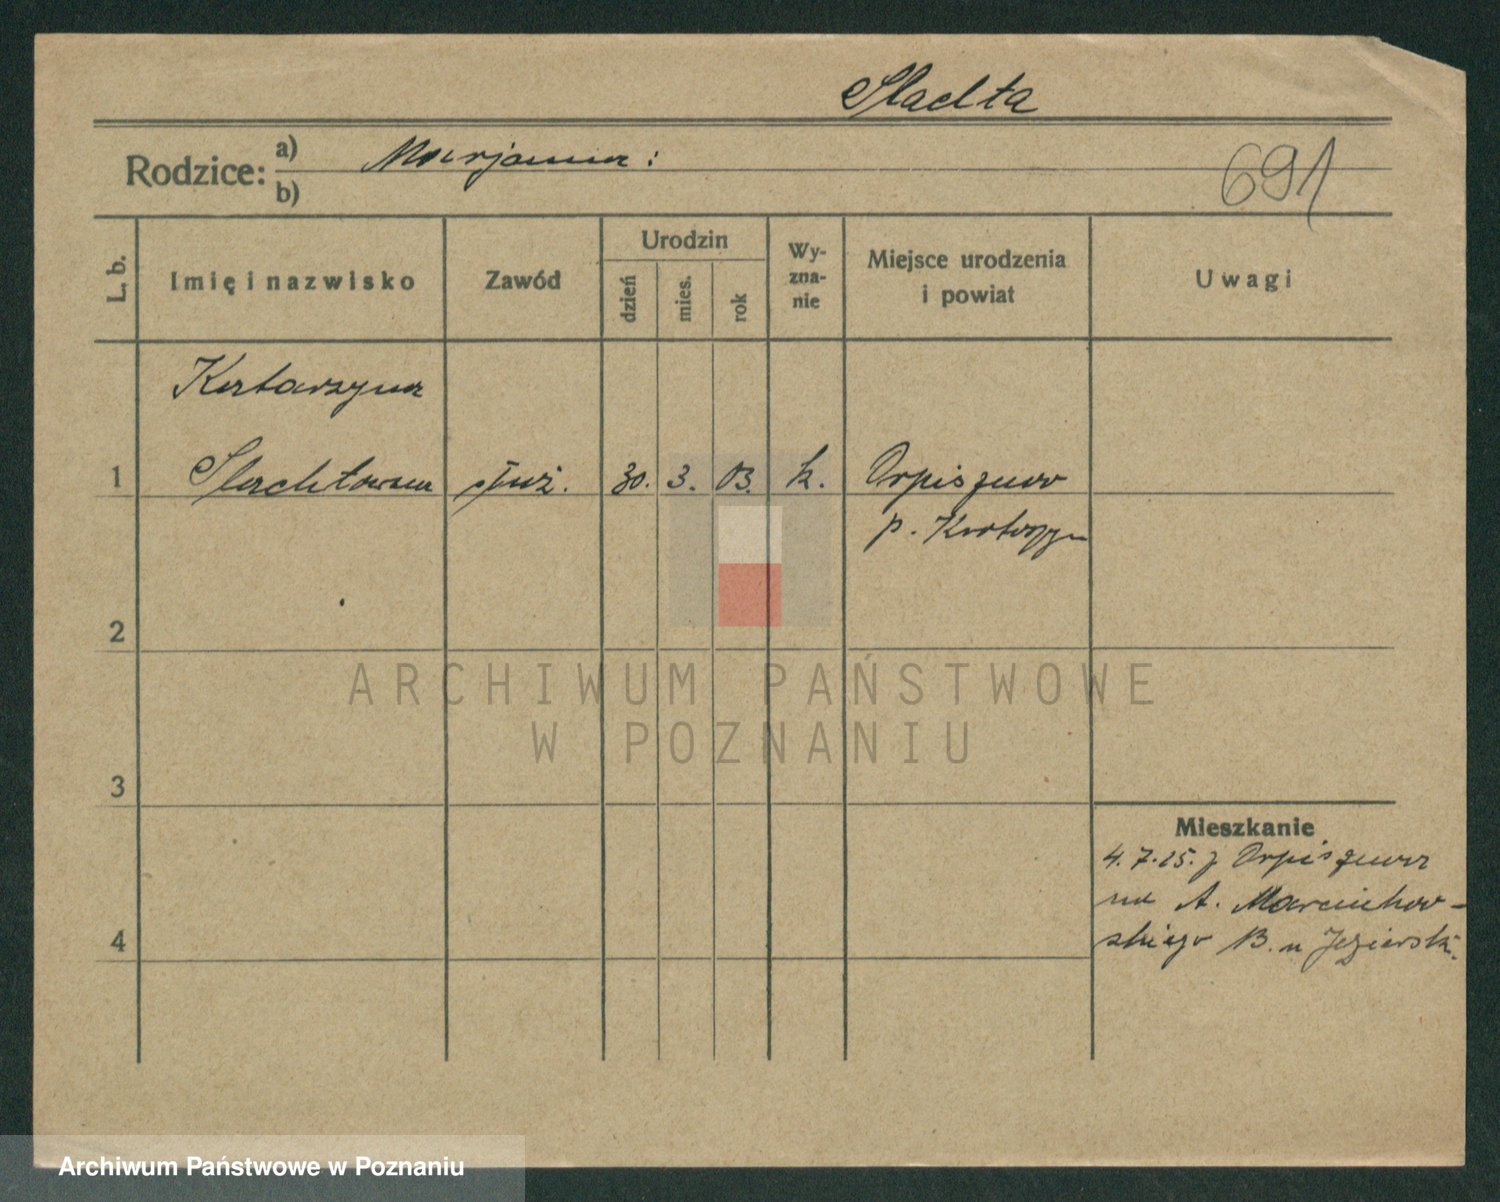 Slachta
Rodzice:
a) Marjanna:
b)
691
L. b.
Imię i nazwisko
Zawód
Urodzin
dzień
mies.
rok
Wy-
zna-
nie
Miejsce urodzenia
i powiat
Uwagi
Katarzyna
1 Slachtowna służ. 30. 3. 03. k. Orpiszewo
p. Krotoszyn
2
3
4
Mieszkanie
4.7.25. z Orpiszewa
na A. Marcinkow-
skiego B. u Jezierski.
ARCHIWUM PAŃSTWOWE
W POZNANIU
Archiwum Państwowe w Poznaniu